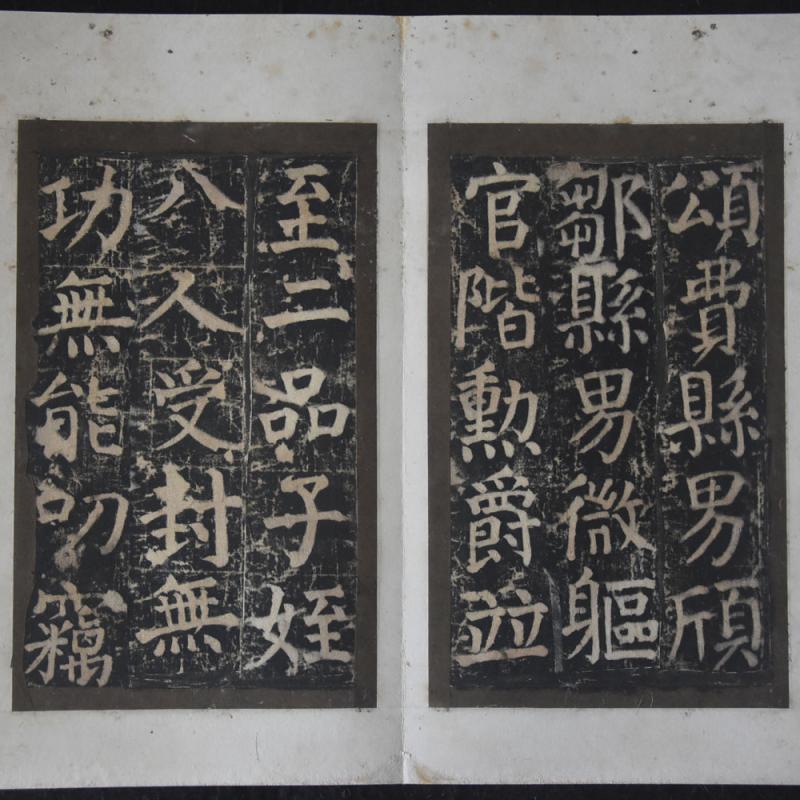 頌費縣男頎
鄒縣男微軀
官階勳爵並
至三品子姪
八人受封無
功無能叨竊